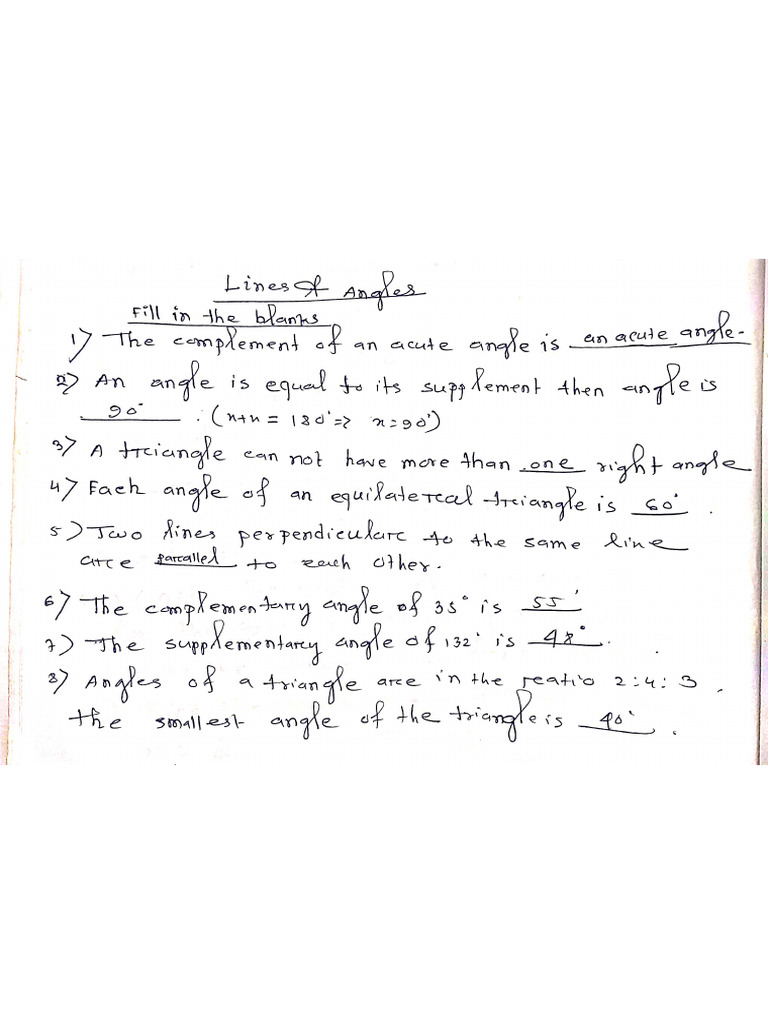 Lines & Angles
Fill in the blanks
1) The complement of an acute angle is an acute angle.
2) An angle is equal to its supplement then angle is
90°. (x+x = 180° => x=90°)
3) A triangle can not have more than one right angle
4) Each angle of an equilateral triangle is 60°.
5) Two lines perpendicular to the same line
are parallel to each other.
6) The complementary angle of 35° is 55°
7) The supplementary angle of 132° is 48°.
8) Angles of a triangle are in the ratio 2:4:3.
the smallest angle of the triangle is 40°.